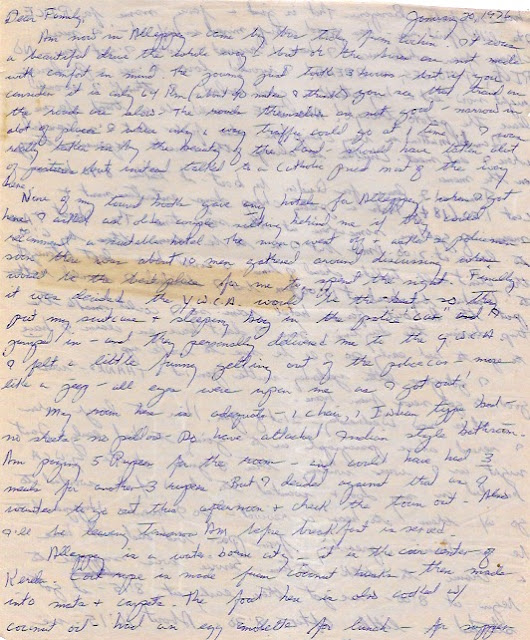 January 30, 197
Dear Family,
Am now in Alleppey - came by bus today from Cochin. It was
a beautiful drive the whole way - but the buses are not made
with comfort in mind the journey just took 3 hours - but if you
consider it is only 64 Km (about 40 miles I think) you see that travel on
the roads are slow - The roads themselves are not good - narrow in
alot of places & where only 1 way traffic could go at 1 time. I was
really taken by the beauty of the land - should have taken alot
of pictures but instead talked to a Catholic priest most of the way
here.
None of my travel books gave any hotels for Alleppey - when I got
here I asked an older couple sitting behind me if they could
recommend a middle hotel. The man I went off & asked a policeman
soon there was about 10 men gathered around discussing where
would be the best place for me to spend the night - Finally
it was decided the Y.W.C.A. would be the best - so they
put my suitcase & sleeping bag in the police car and I
jumped in - and they personally delivered me to the YWCA
I felt a little funny getting out of the police car & more
like a jeep - all eyes were upon me as I got out!
My room here is adequate - 1 chair, 1 Indian type bed -
no sheets - no pillow. Do have attached Indian style bathroom.
Am paying 5 Rupees for the room - and could have had 3
meals for another 3 rupees. But I decided against that as I
wanted to go out this afternoon & check the town out - Also
I'll be leaving tomorrow AM before breakfast is served
Alleppey is a water-borne city - it is the coir center of
Kerala. Coir rope is made from coconut husks - then made
into mats & carpets. The food here is also cooked w/
coconut oil - had an egg omelette for lunch - for supper